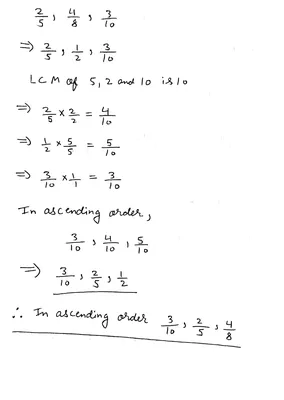 2/5 , 4/8 , 3/10
⇒ 2/5 , 1/2 , 3/10
LCM of 5, 2 and 10 is 10
⇒ 2/5 × 2/2 = 4/10
⇒ 1/2 × 5/5 = 5/10
⇒ 3/10 × 1/1 = 3/10
In ascending order,
3/10 , 4/10 , 5/10
⇒ 3/10 , 2/5 , 1/2
∴ In ascending order 3/10 , 2/5 , 4/8